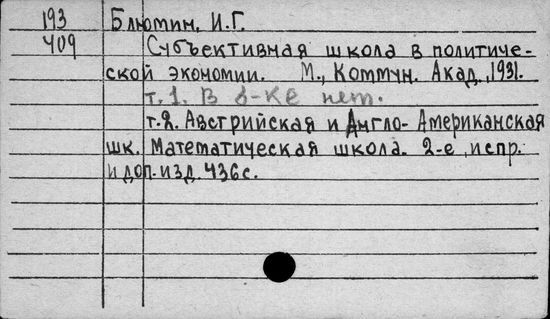 193 Блюмин, И.Г.
409 Субъективная школа в политиче-
ской экономии. М., Коммун. Акад., 1931.
т. 1. В б-ке нет.
т. 2. Австрийская и Англо-Американская
шк. Математическая школа. 2-е, испр.
и доп. изд. 436 с.